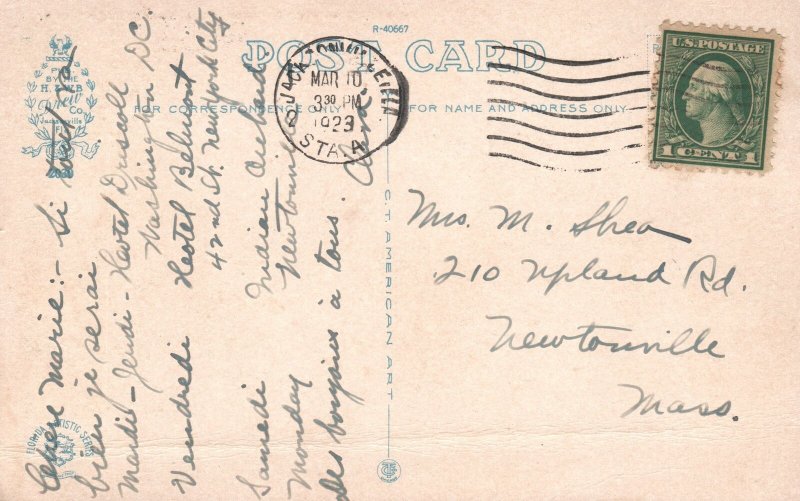 R-40667
POST CARD
FOR CORRESPONDENCE ONLY
FOR NAME AND ADDRESS ONLY
MAR 10
3 30 PM
1923
STA. A
U.S. POSTAGE
1 CENT 1
C.T. AMERICAN ART
FLORIDA ARTISTIC SERIES
Chere Marie:- Si tout va
bien je serai
Mardi - Jeudi - Hotel Driscoll
Washington DC.
Vendredi Hotel Belmont
42nd St. New York City
Samedi Indian Orchard
Monday Newtonville
Des bonjours à tous.
Mrs. M. Shea
210 Upland Rd.
Newtonville
Mass.